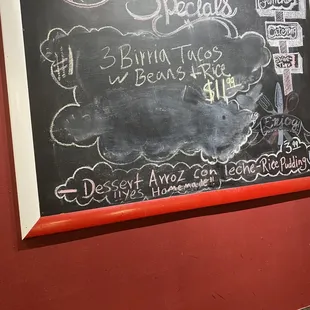 Specials
#1 3 Birria Tacos
w Beans + Rice
$11.99
$
Catering
Enjoy
3.99
- Dessert Arroz con leche-Rice Pudding
!!Yes Homemade!!